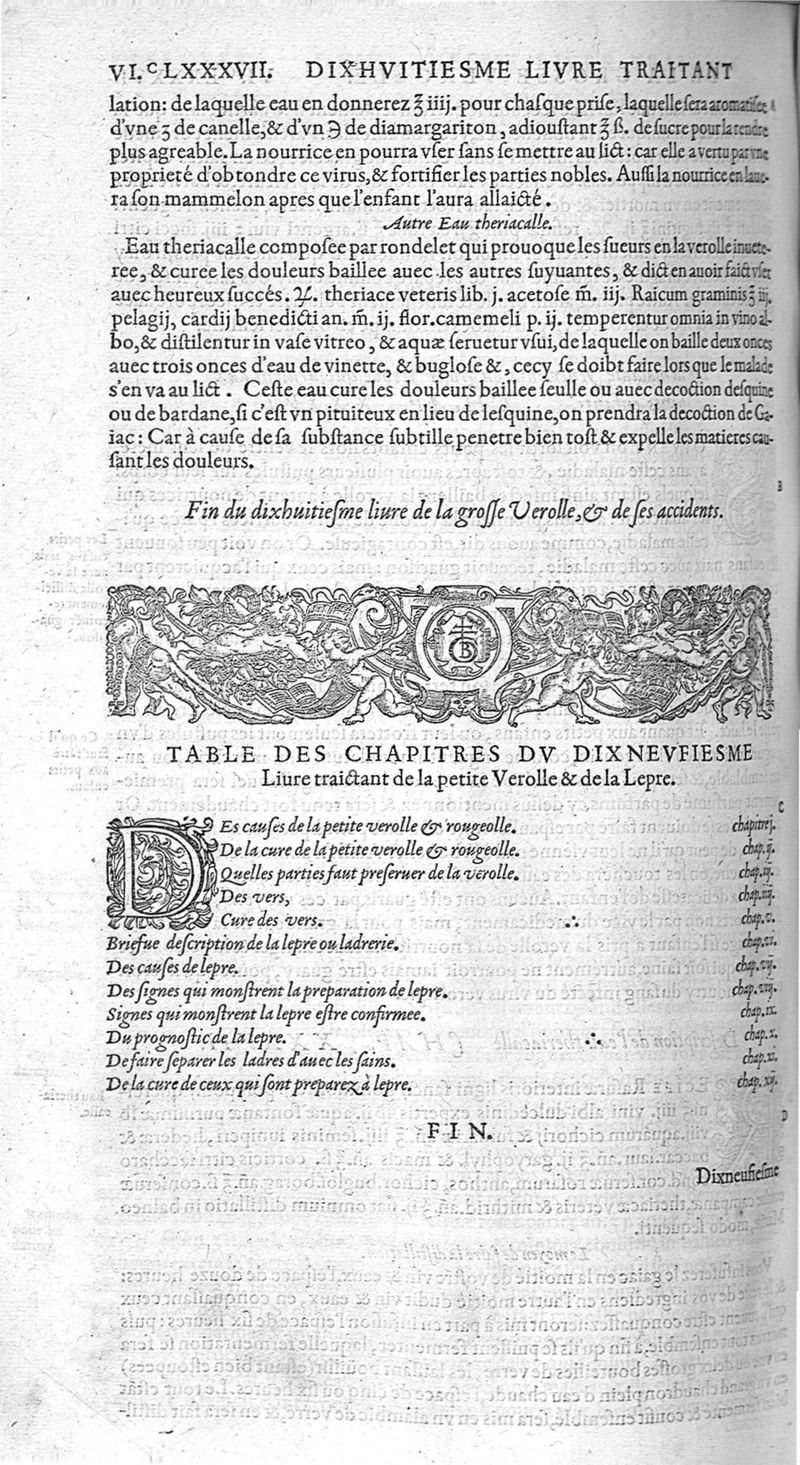 VI.ᶜLXXXVII. DIXHVITIESME LIVRE TRAITANT
lation: de laquelle eau en donnerez ℥ iiij. pour chaſque priſe, laquelle ſera aromatiſee
d'vne ʒ de canelle, & d'vn ℈ de diamargariton, adiouſtant ℥ ß. de ſucre pour la rendre
plus agreable. La nourrice en pourra vſer ſans ſe mettre au lict: car elle a vertu par vne
proprieté d'obtondre ce virus, & fortifier les parties nobles. Auſſi la nourrice en laue-
ra ſon mammelon apres que l'enfant l'aura allaicté.
Autre Eau theriacalle.
Eau theriacalle compoſee par rondelet qui prouoque les ſueurs en la verolle inuete-
ree, & curee les douleurs baillee auec les autres ſuyuantes, & dict en auoir faict vſer
auec heureux ſuccés. ♃. theriace veteris lib. j. acetoſe m̃. iij. Raicum graminis ℥ iij.
pelagij, cardij benedicti an. m̃. ij. flor. camemeli p. ij. temperentur omnia in vino al-
bo, & diſtilentur in vaſe vitreo, & aquæ ſeruetur vſui, de laquelle on baille deux onces
auec trois onces d'eau de vinette, & bugloſe &, cecy ſe doibt faire lors que le malade
s'en va au lict. Ceſte eau cure les douleurs baillee ſeulle ou auec decoction deſquine
ou de bardane, ſi c'eſt vn pituiteux en lieu de leſquine, on prendra la decoction de Ga-
iac: Car à cauſe de ſa ſubſtance ſubtille penetre bien toſt & expelle les matieres cau-
ſant les douleurs.
B
Fin du dixhuitieſme liure de la groſſe Verolle, & de ſes accidents.
TABLE DES CHAPITRES DV DIXNEVFIESME
Liure traictant de la petite Verolle & de la Lepre.
C
DEs cauſes de la petite verolle & rougeolle. chapitre j.
De la cure de la petite verolle & rougeolle. chap. ij.
Quelles parties faut preſeruer de la verolle. chap. iij.
Des vers, chap. iiij.
Cure des vers. ∴ chap. v.
Briefue deſcription de la lepre ou ladrerie. chap. vi.
Des cauſes de lepre. chap. vij.
Des ſignes qui monſtrent la preparation de lepre. chap. viij.
Signes qui monſtrent la lepre eſtre confirmee. chap. ix.
Du prognoſtic de la lepre. ∴ chap. x.
De faire ſeparer les ladres d'auec les ſains. chap. xi.
De la cure de ceux qui ſont preparez à lepre. chap. xij.
D
FIN.
Dixneufieſme